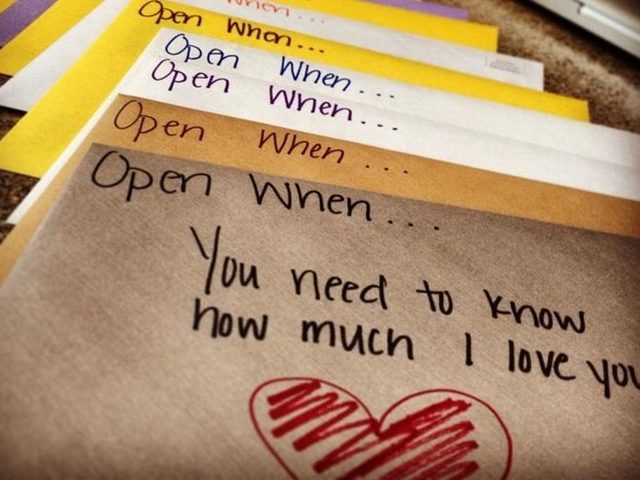 When...
Open When...
Open When...
Open When...
Open When...
Open When...
You need to know
how much I love you